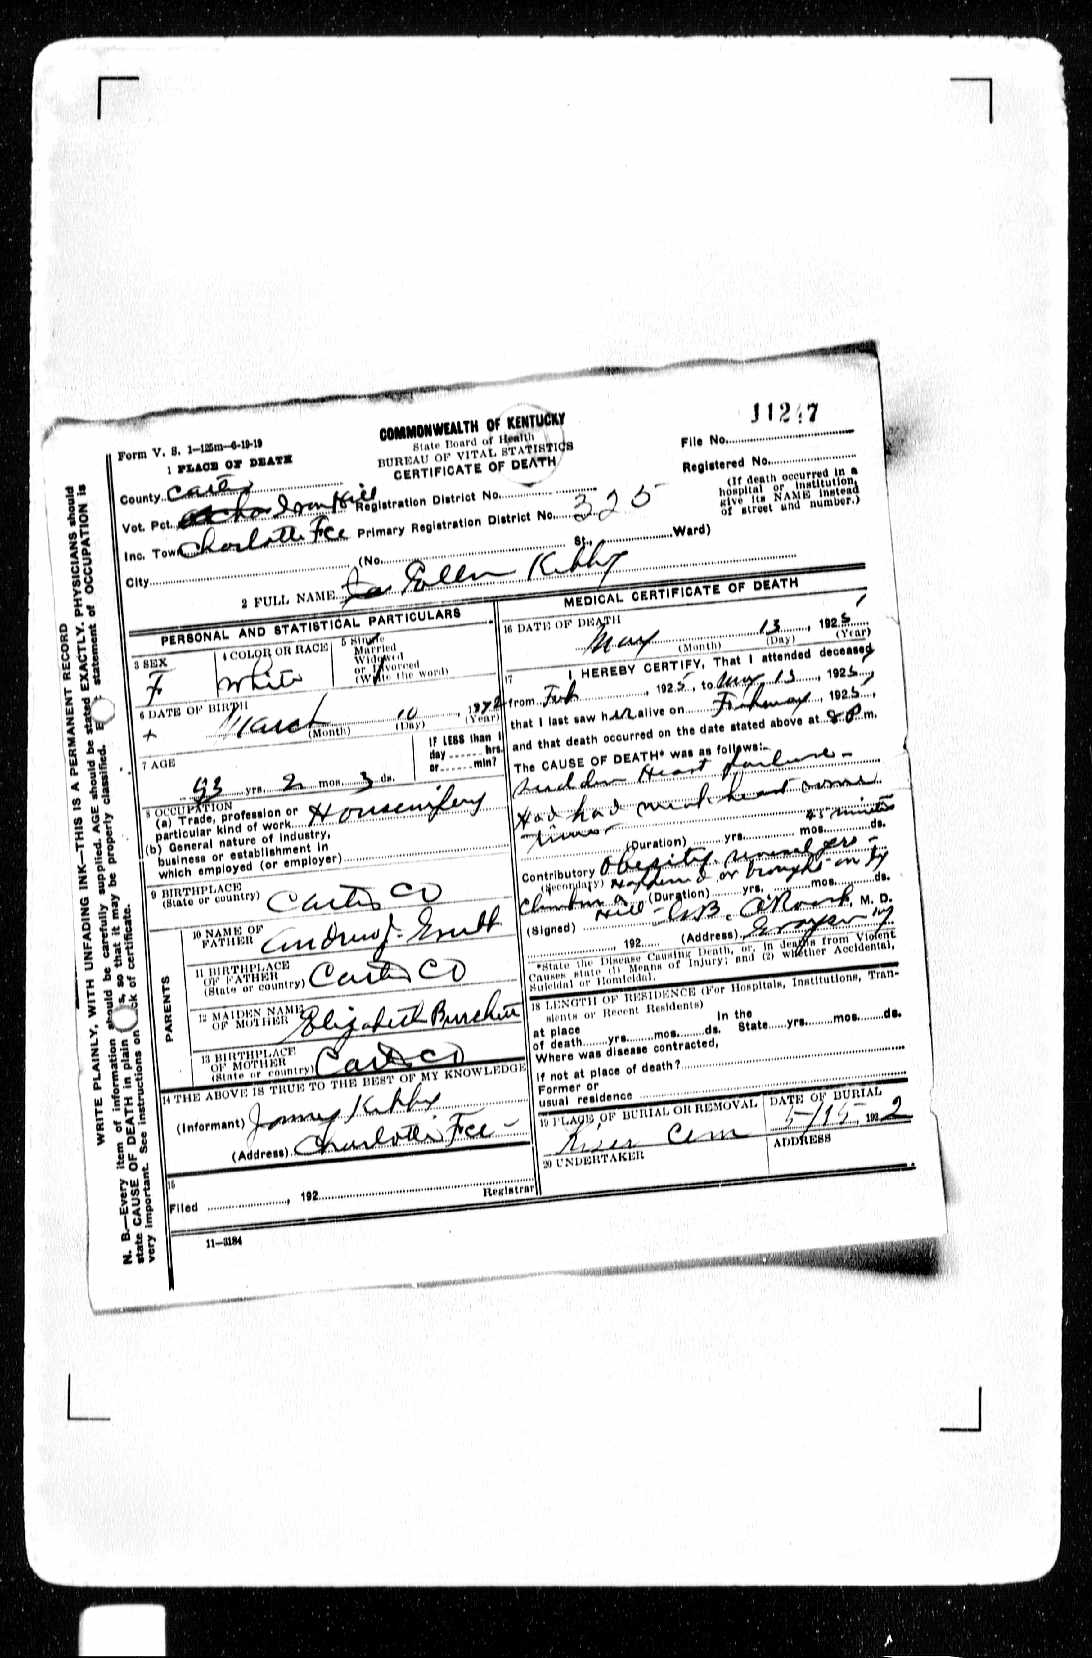 WRITE PLAINLY, WITH UNFADING INK—THIS IS A PERMANENT RECORD
N. B.—Every item of information should be carefully supplied. AGE should be stated EXACTLY. PHYSICIANS should
state CAUSE OF DEATH in plain so that it may be properly classified. statement of OCCUPATION is
very important. See instructions on ck of certificate.
Form V. S. 1-125m-6-19-19
COMMONWEALTH OF KENTUCKY
State Board of Health
BUREAU OF VITAL STATISTICS
CERTIFICATE OF DEATH
11247
File No.
Registered No.
(If death occurred in a
hospital or institution,
give its NAME instead
of street and number.)
1 PLACE OF DEATH
County Carter
Vot. Pct. Registration District No.
Inc. Town Charlotte Fce Primary Registration District No. 325
City (No. St., Ward)
2 FULL NAME Ellen Kibby
PERSONAL AND STATISTICAL PARTICULARS
3 SEX
F
4 COLOR OR RACE
White
5 Single
Married
Widowed
or Divorced
(Write the word)
6 DATE OF BIRTH
March 10
(Month) (Day) (Year)
7 AGE
yrs. 2 mos. 3 ds.
IF LESS than 1
day hrs.
or min?
8 OCCUPATION
(a) Trade, profession or
particular kind of work Housewifery
(b) General nature of industry,
business or establishment in
which employed (or employer)
9 BIRTHPLACE
(State or country) Carter CO
PARENTS
10 NAME OF
FATHER Andrew J.
11 BIRTHPLACE
OF FATHER
(State or country) Carter CO
12 MAIDEN NAME
OF MOTHER Elizabeth Burchett
13 BIRTHPLACE
OF MOTHER
(State or country) Carter CO
14 THE ABOVE IS TRUE TO THE BEST OF MY KNOWLEDGE
(Informant) James Kibby
(Address) Charlotte Fce
15
Filed , 192
Registrar
11-3184
MEDICAL CERTIFICATE OF DEATH
16 DATE OF DEATH
May 13, 1925
(Month) (Day) (Year)
17 I HEREBY CERTIFY, That I attended deceased
from Feb , 1925, to May 13, 1925,
that I last saw her alive on , 1925,
and that death occurred on the date stated above at 8 P m.
The CAUSE OF DEATH* was as follows:
Sudden Heart failure -
Had had weak heart some
time - 45 minutes
(Duration) yrs. mos. ds.
Contributory Obesity, several yrs -
(Secondary) Happened or brought on by
climbing a hill (Duration) yrs. mos. ds.
(Signed) M. D.
, 192 (Address) Grayson Ky
*State the Disease Causing Death, or, in deaths from Violent
Causes state (1) Means of Injury; and (2) whether Accidental,
Suicidal or Homicidal.
18 LENGTH OF RESIDENCE (For Hospitals, Institutions, Tran-
sients or Recent Residents)
at place In the
of death yrs. mos. ds. State yrs. mos. ds.
Where was disease contracted,
If not at place of death?
Former or
usual residence
19 PLACE OF BURIAL OR REMOVAL
Cem
DATE OF BURIAL
5/15 1922
20 UNDERTAKER
ADDRESS